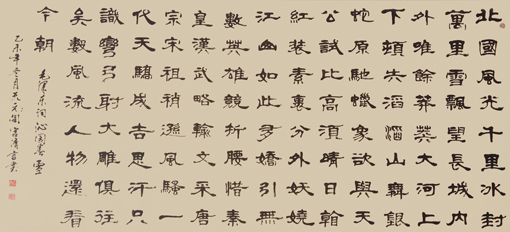 北國風光千里冰封
萬里雪飄望長城內
外唯餘莽莽大河上
下頓失滔滔山舞銀
蛇原馳蠟象欲與天
公試比高須晴日看
紅裝素裹分外妖嬈
江山如此多嬌引無
數英雄競折腰惜秦
皇漢武略輸文采唐
宗宋祖稍遜風騷一
代天驕成吉思汗只
識彎弓射大雕俱往
矣數風流人物還看
今朝
毛澤東詞沁園春雪
乙未年冬月天元閣